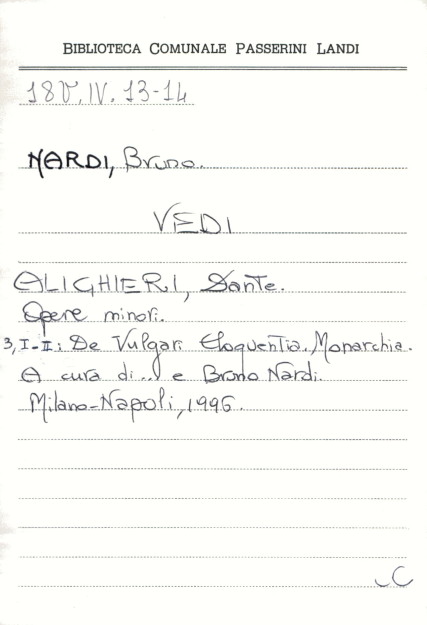 BIBLIOTECA COMUNALE PASSERINI LANDI
18V.IV.13-14
NARDI, Bruno.
VEDI
ALIGHIERI, Dante.
Opere minori.
3, I-II: De Vulgari Eloquentia. Monarchia.
A cura di... e Bruno Nardi.
Milano-Napoli, 1996.